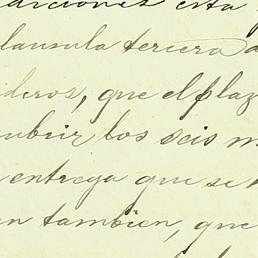 diciones esta
lausula tercera a
ideros, que el plaz
cubrir los seis m
entrega que se h
en tambien, que